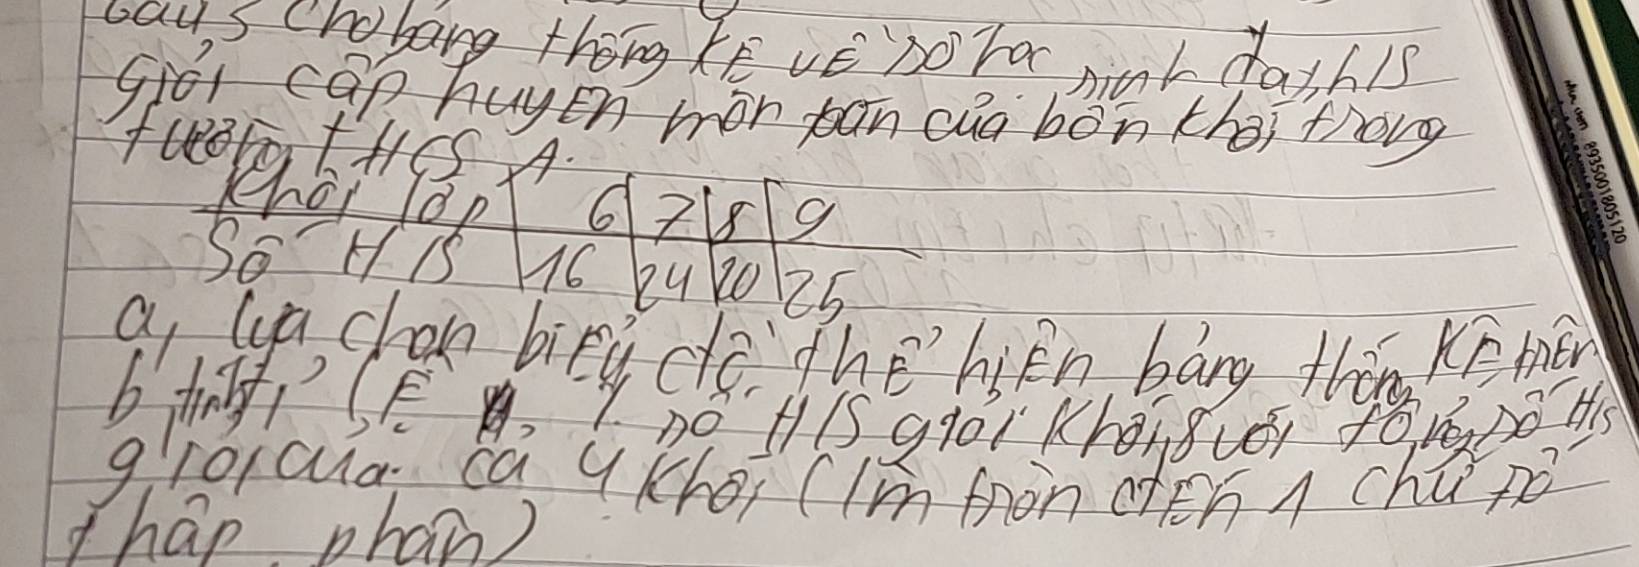 cho bảng thống kê về số học sinh đạt h/s
giỏi cấp huyện môn toán của bốn khối trong
trường THCS A.
Khối lớp 6 7 8 9
Số H/S 16 24 20 25
a, lựa chọn biểu đồ thể hiện bảng thống kê trên
b, tính tỉ lệ % số H/S giỏi khối 8 với tổng số H/S
giỏi của cả 4 khối (làm tròn đến 1 chữ số
thập phân)
8935001805120